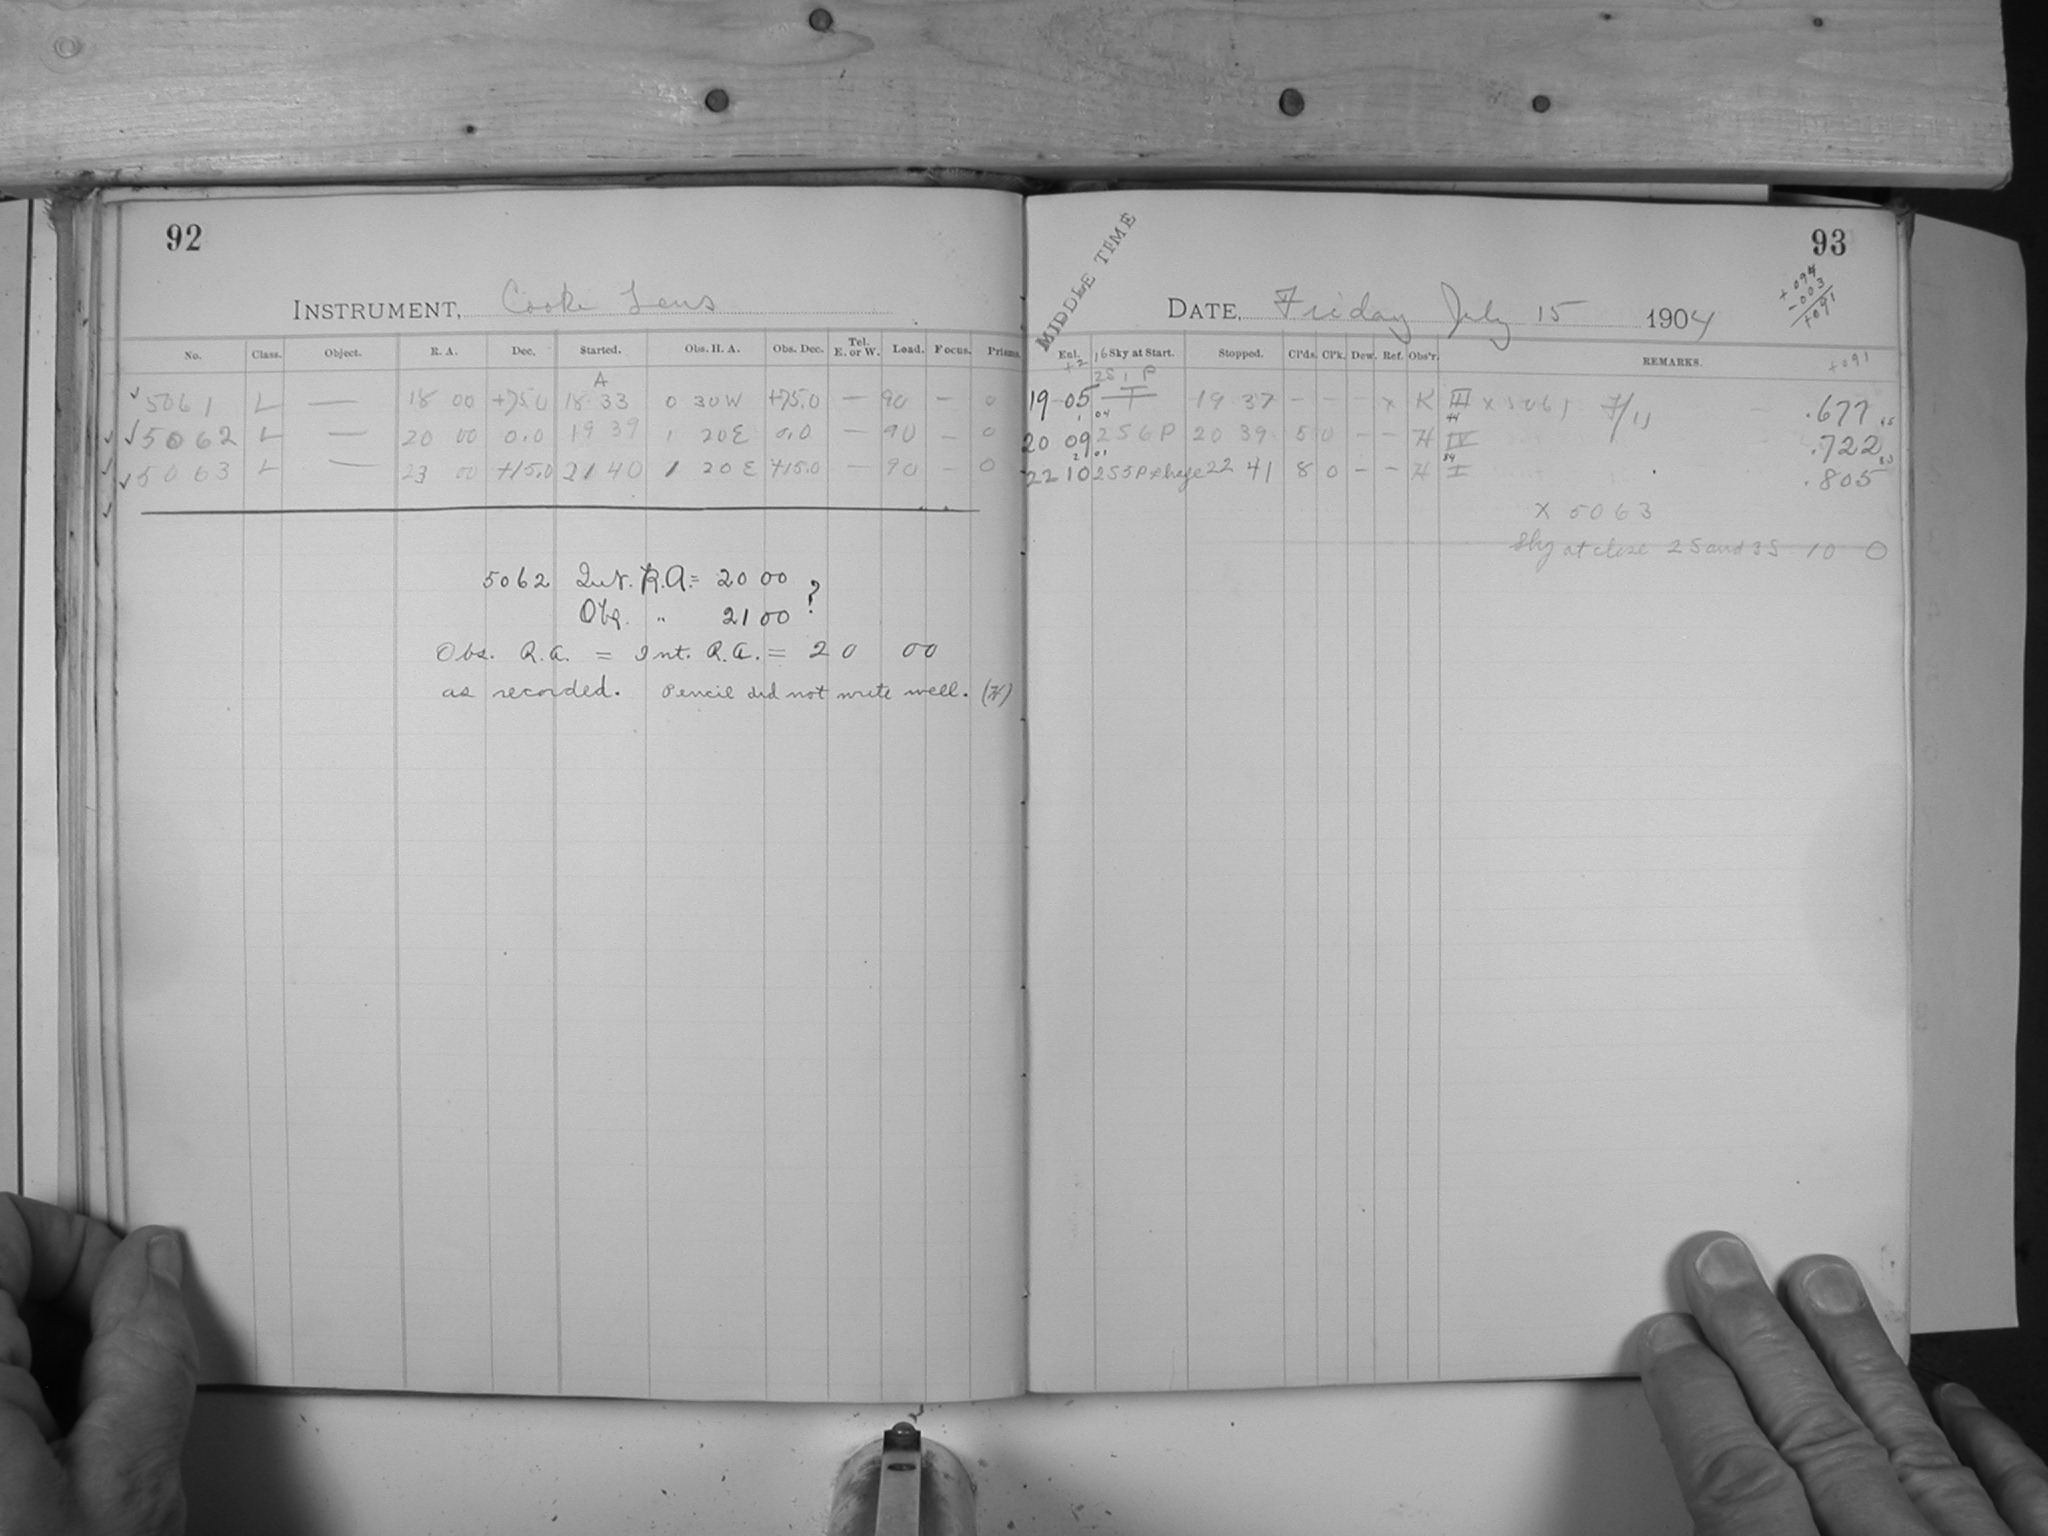 92
INSTRUMENT, Cooke Lens
No. Class. Object. R. A. Dec. Started. Obs. H. A. Obs. Dec. Tel. E. or W. Load. Focus. Prisms.
A
✓ 5061 L — 18 00 +75.0 18 33 0 30 W +75.0 — 90 — 0
✓ ✓ 5062 L — 20 00 0.0 19 39 1 20 E 0.0 — 90 — 0
✓ ✓ 5063 L — 23 00 +15.0 21 40 1 20 E +15.0 — 90 — 0
✓
5062 Int. R.A. = 20 00
Obs. " 21 00 ?
Obs. R.A. = Int. R.A. = 20 00
as recorded. Pencil did not write well. (H)
MIDDLE TIME
93
+094
-003
+091
DATE, Friday July 15 1904
Enl. 16 Sky at Start. Stopped. Cl'ds. Cl'k. Dew. Ref. Obs'r. REMARKS.
+2 2S 1 P +091
19 05 I 19 37 - - - x K III x 5061 7/11 .677
20 09 2S6P 20 39 5 0 - - H IV .722
22 10 2S5P 22 41 8 0 - - H I .805
x 5063
Sky at close 2S and 3S 10 0